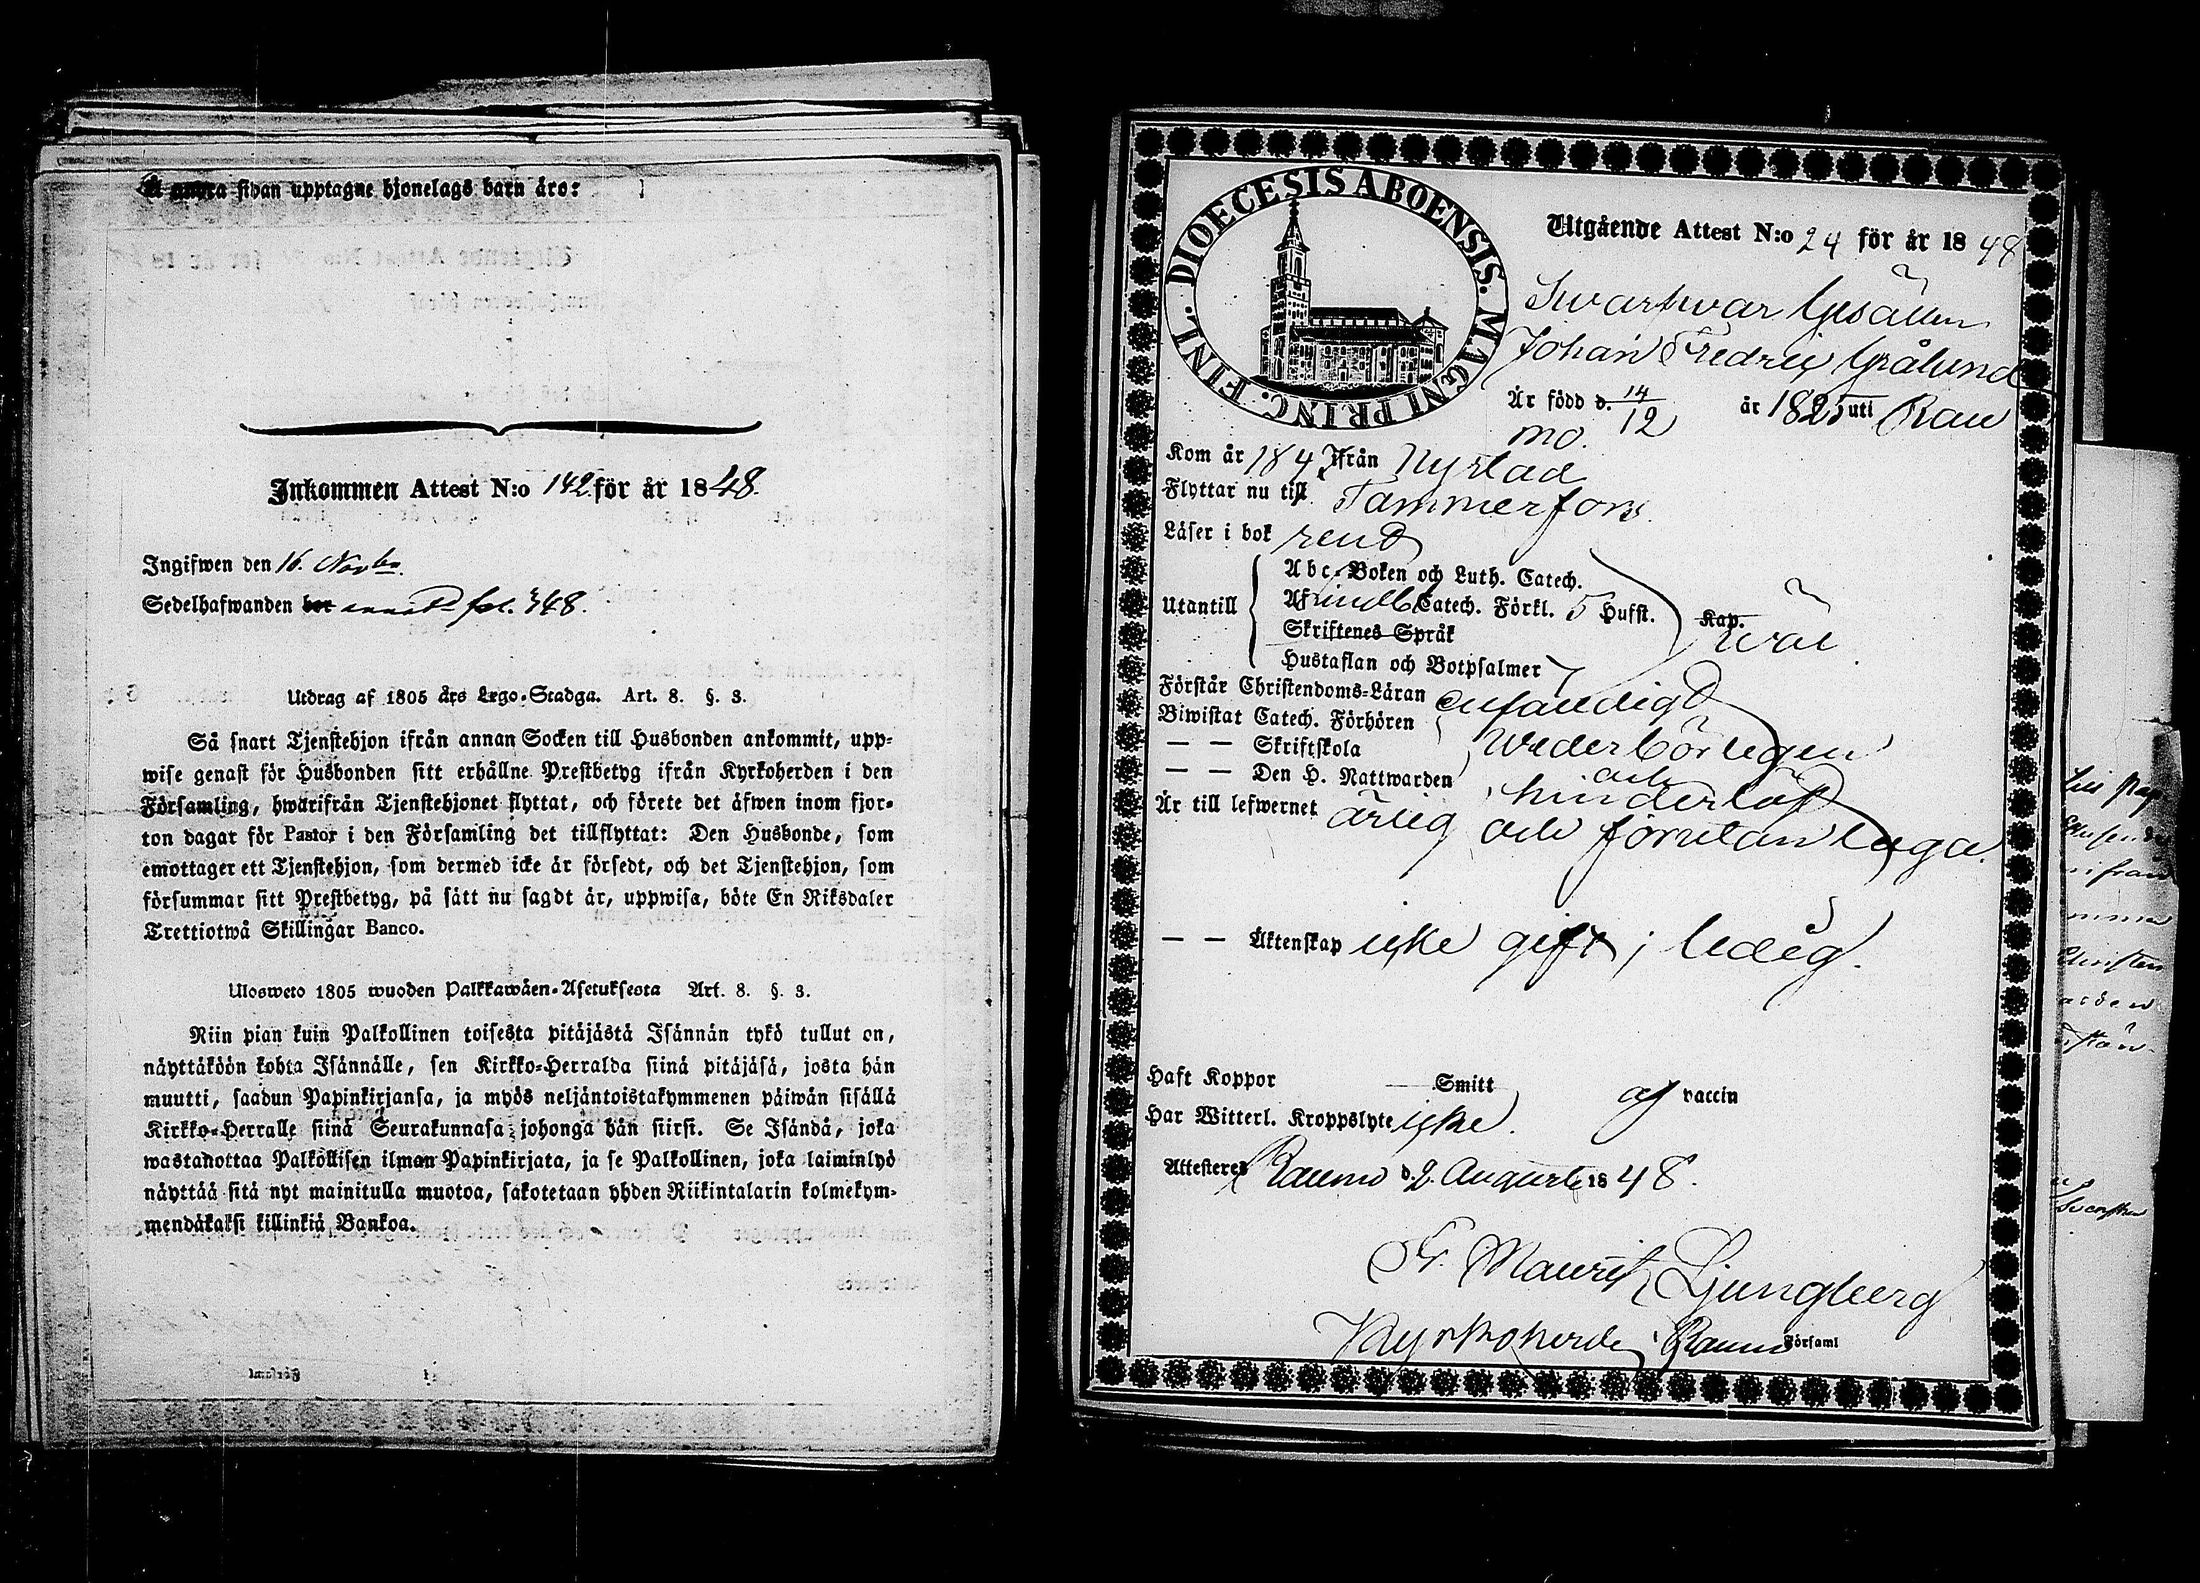 å andra sidan upptagne hjonelags barn äro:
Inkommen Attest N:o 142 för år 1848.
Ingifwen den 16. Novbr.
Sedelhafwanden bor fol. 348.
Utdrag af 1805 års Lego-Stadga. Art. 8. §. 3.
Så snart Tjenstehjon ifrån annan Socken till Husbonden ankommit, upp-
wise genast för Husbonden sitt erhållne Prestbetyg ifrån Kyrkoherden i den
Församling, hwarifrån Tjenstehjonet flyttat, och förete det äfwen inom fjor-
ton dagar för Pastor i den Församling det tillflyttat: Den Husbonde, som
emottager ett Tjenstehjon, som dermed icke är försedt, och det Tjenstehjon, som
försummar sitt Prestbetyg, på sätt nu sagdt är, uppwisa, böte En Riksdaler
Trettiotwå Skillingar Banco.
Ulosweto 1805 wuoden Palkkawäen-Asetuksesta Art. 8. §. 3.
Niin pian kuin Palkollinen toisesta pitäjästä Isännän tykö tullut on,
näyttäköön kohta Isännälle, sen Kirkko-Herralda siinä pitäjäsä, josta hän
muutti, saadun Papinkirjansa, ja myös neljäntoistakymmenen päiwän sisällä
Kirkko-Herralle siinä Seurakunnasa johonga hän siirsi. Se Isändä, joka
wastanottaa Palkollisen ilman Papinkirjata, ja se Palkollinen, joka laiminlyö
näyttää sitä nyt mainitulla muotoa, sakotetaan yhden Riikintalarin kolmekym-
mendäkaksi killinkiä Bankoa.
DIOECESIS ABOENSIS. MAGNI PRINC. FINL.
Utgående Attest N:o 24 för år 1848
Swarfwar Gesällen
Johan Fredric Grålund
Är född d. 14/12 år 1825 uti Rau
mo.
Kom år 1847 ifrån Nystad
Flyttar nu till Tammerfors.
Läser i bok rent
Utantill
Abc-Boken och Luth. Catech.
Af Catech. Förkl. 5 Hufst. Kap. wäl
Skriftenes Språk
Hustaflan och Botpsalmer
Förstår Christendoms-Läran enfaldigt
Biwistat Catech. Förhören
— — Skriftskola wederbörligen
— — Den H. Nattwarden och
Är till lefwernet ärlig hinderlöst
och förutan laga
— — Äktenskap icke gift; ledig.
Haft Koppor Smitt af vaccin
Har Witterl. Kroppslyte icke.
Attesteres Raumo d. 2. Augusti 1848.
Fr. Maurit Ljungberg
Kyrkoherde i Raumo Församl